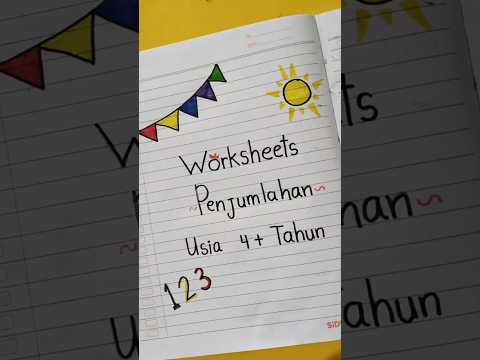 Worksheets
~Penjumlahan~
Usia 4+ Tahun
1 2 3